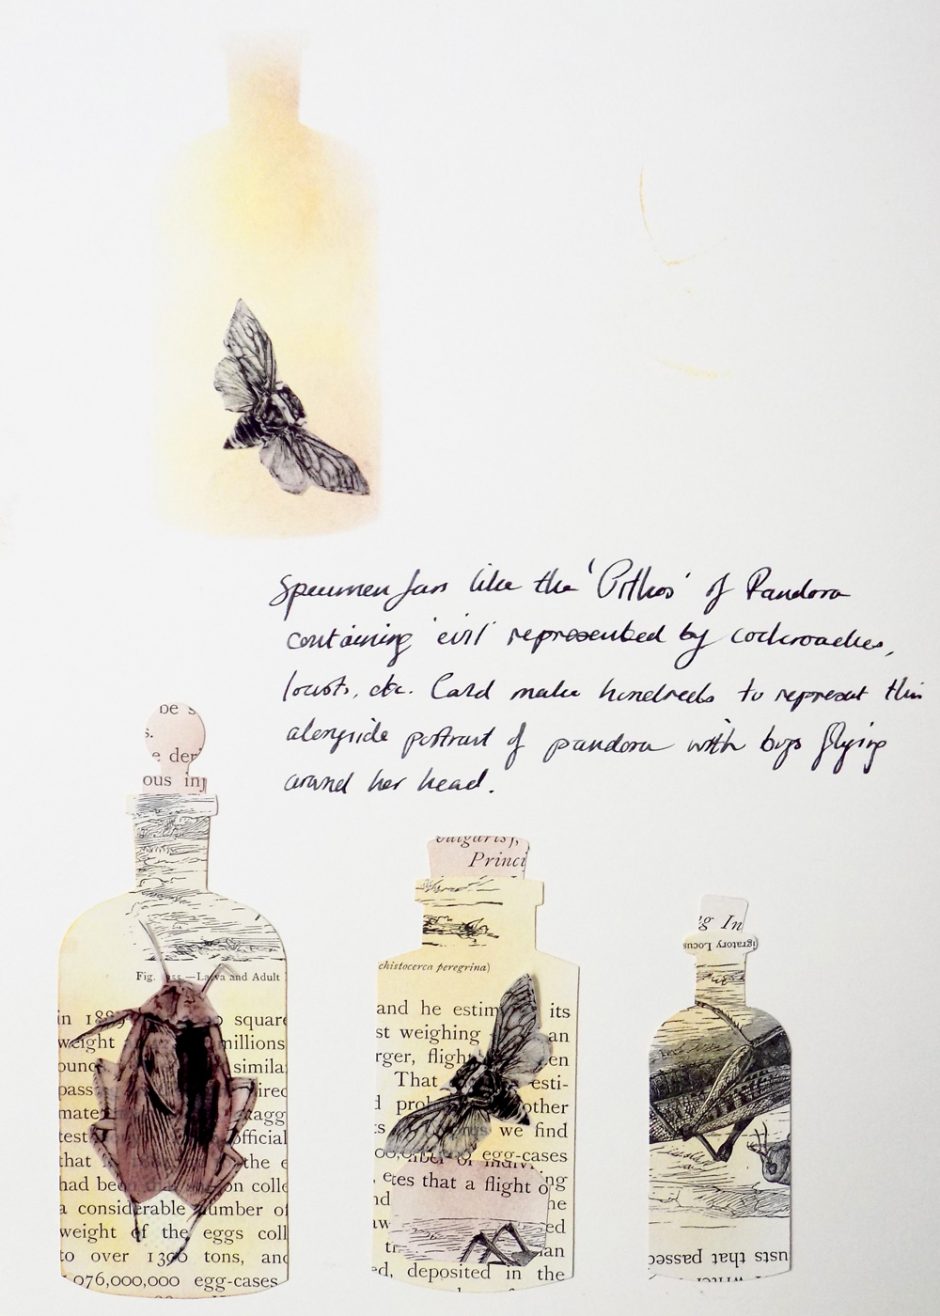 Specimen Jars like the 'Pithos' of Pandora
containing 'evil' represented by cockroaches,
locusts, etc. Could make hundreds to represent this
alongside portrait of pandora with bugs flying
around her head.
be s
s.
e der
ous inj
Fig. 55.—Larva and Adult
in 1889 square
weight millions
simila
pass
mate stagg
test official
that the e
had been on colle
a considerable number of
weight of the eggs coll
to over 1390 tons, and
1,076,000,000 egg-cases
vulgaris),
Princi
chistocerca peregrina)
and he estim its
st weighing an
rger, flight en
That esti-
d prob other
ts we find
egg-cases
tes that a flight o ng
he
ed
an
ed, deposited in the
g In
igratory Locus
usts that passed